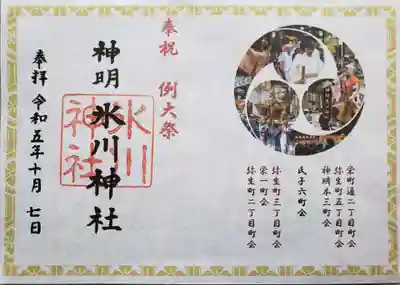 栄町通二丁目町会
弥生町五丁目町会
神明本三町会
氏子六町会
弥生町三丁目町会
栄一町会
弥生町二丁目町会
奉祝 例大祭
神明氷川神社
氷川
神社
奉拝 令和五年十月七日